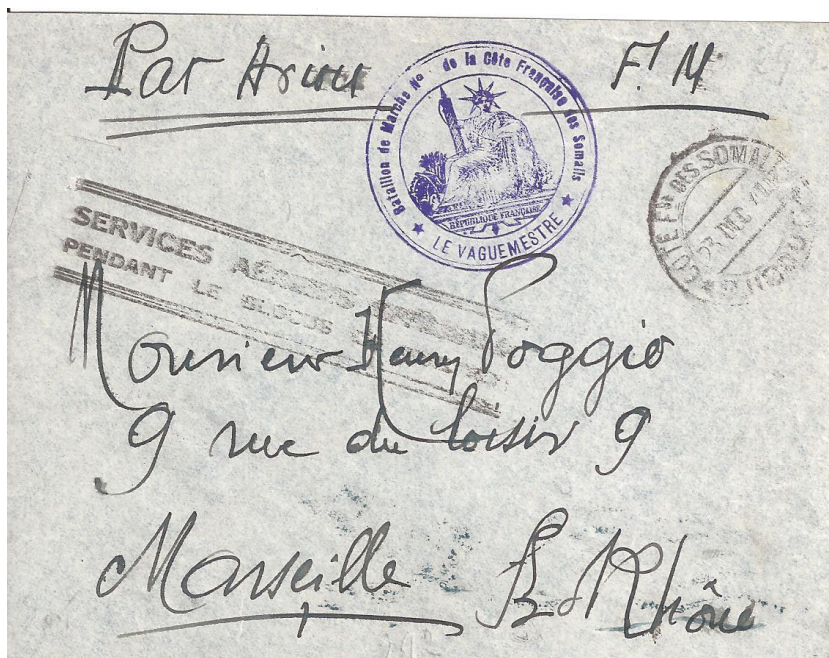 Par Avion F.M
Bataillon de Marche No de la Côte Française des Somalis
RÉPUBLIQUE FRANÇAISE
★ LE VAGUEMESTRE ★
CÔTE FSE DES SOMALIS
DEC
DJIBOUTI
SERVICES AÉRIENS
PENDANT LE BLOCUS
Monsieur Henry Poggio
9 rue du loisir 9
Marseille B d Rhône